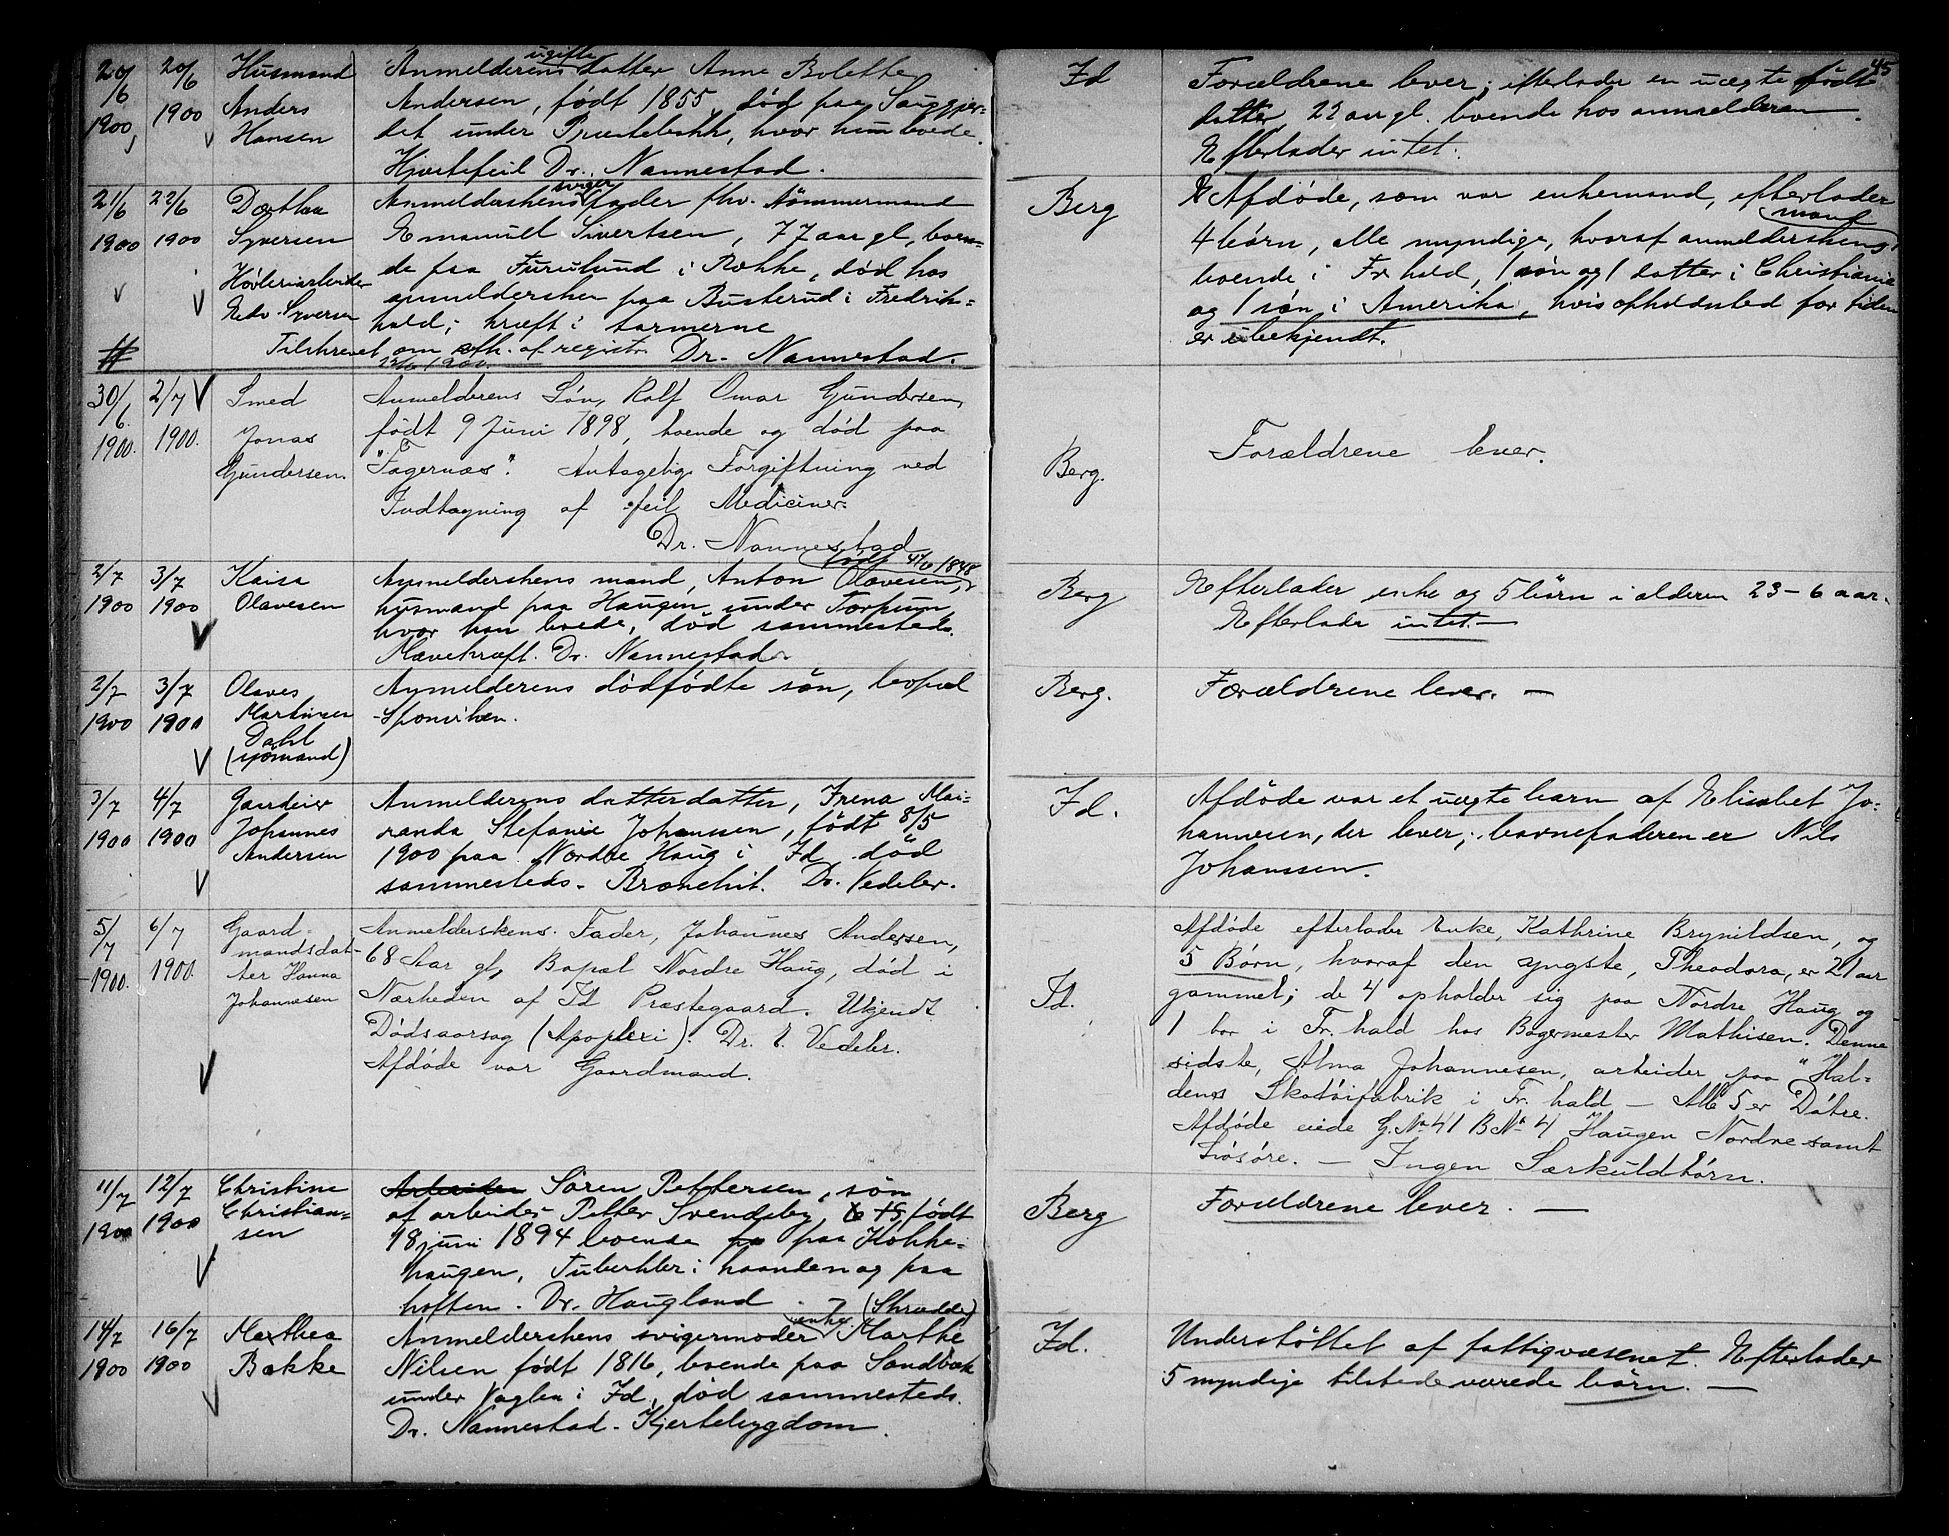 45
20/6 1900
20/6 1900
Husmand
Anders
Hansen
Anmelderens ugifte datter Anne Bolette
Andersen, født 1855, død paa
det under Præstebakke, hvor hun boede.
Hjertefeil Dr. Nannestad.
Id
Forældrene lever; efterlader en uægte født
datter 22 aar gl. boende hos anmelderen.
Efterlader intet.
21/6 1900
22/6 1900
Dorthea
Syversen
Høvleriarbeider
Edv. Syversen
Anmelderskens svigerfader fhv. tømmermand
Emanuel Sivertsen, 77 aar gl, boen-
de paa Furulund i Rokke, død hos
anmeldersken paa Busterud i Fredriks-
hald; kræft i tarmerne
Tilskrevet om afh. af registr. Dr. Nannestad.
23/6 1900.
Berg
Afdøde, som var enkemand, efterlader
4 børn, alle myndige, hvoraf anmelderskens mand
boende i Fr.hald, 1 søn og 1 datter i Christiania
og 1 søn i Amerika, hvis opholdssted for tiden
er ubekjendt.
30/6. 1900.
2/7 1900.
Smed
Jonas
Gundersen.
Anmelderens Søn, Rolf Omar Gundersen,
født 9 Juni 1898, boende og død paa
"Fagernæs". Antagelig Forgiftning ved
Indtagning af feil Mediciner.
Dr. Nannestad
Berg.
Forældrene lever.
2/7 1900
3/7 1900
Kaisa
Olavesen
Anmelderskens mand, Anton Olavesen, født 4/10 1848
husmand paa Haugen under Torpum,
hvor han boede, død sammesteds.
Mavekræft. Dr. Nannestad.
Berg
Efterlader enke og 5 børn i alderen 23-6 aar.
Efterlader intet. —
2/7 1900
3/7 1900
Olaves
Martinsen
Dahl
(sjømand)
Anmelderens dødfødte søn, bopæl
Sponviken.
Berg.
Forældrene lever. —
3/7 1900
4/7 1900
Gaardeier
Johannes
Andersen
Anmelderens datterdatter, Frena Mari-
randa Stefanie Johanssen, født 8/5
1900 paa Nordre Haug i Id, død
sammesteds. Bronchit. Dr. Vedeler.
Id.
Afdøde var et uægte barn af Elisabet Jo-
hannesen, der lever; barnefaderen er Nils
Johanssen.
5/7 1900.
6/7 1900.
Gaard-
mandsdat-
ter Hanna
Johannesen
Anmelderskens Fader, Johannes Andersen,
68 Aar gl, Bopæl Nordre Haug, død i
Nærheden af Id Præstegaard. Ukjendt
Dødsaarsag (Apoplexi). Dr. E. Vedeler.
Afdøde var Gaardmand.
Id.
Afdøde efterlader Enke, Kathrine Brynildsen, og
5 Børn, hvoraf den yngste, Theodora, er 21 aar
gammel; de 4 opholder sig paa Nordre Haug og
1 bor i Fr.hald hos Bagermester Mathisen. Denne
sidste, Alma Johannesen, arbeider paa "Hal-
dens Skotøifabrik i Fr.hald - Alle 5 er Døtre.
Afdøde eiede G.No 41 B.No 4 Haugen Nordre samt
Løsøre. — Ingen Særkuldbørn.
11/7 1900
12/7 1900
Christine
Christian-
sen
Arbeider Søren Pettersen, søn
af arbeider Petter Svendsby, født
18 juni 1894 boende paa Kokke-
haugen, Tuberkler i haanden og paa
hoften. Dr. Haugland.
Berg
Forældrene lever. —
14/7 1900
16/7 1900
Marthea
Bakke
Anmelderskens svigermoder enke (Skrædder) Marthe
Nilsen født 1816, boende paa Sandbæk
under Vaglen i Id, død sammesteds.
Dr. Nannestad. Hjertesygdom.
Id.
Understøttet af fattigvæsenet. Efterlader
5 myndige tilstedeværede børn. —